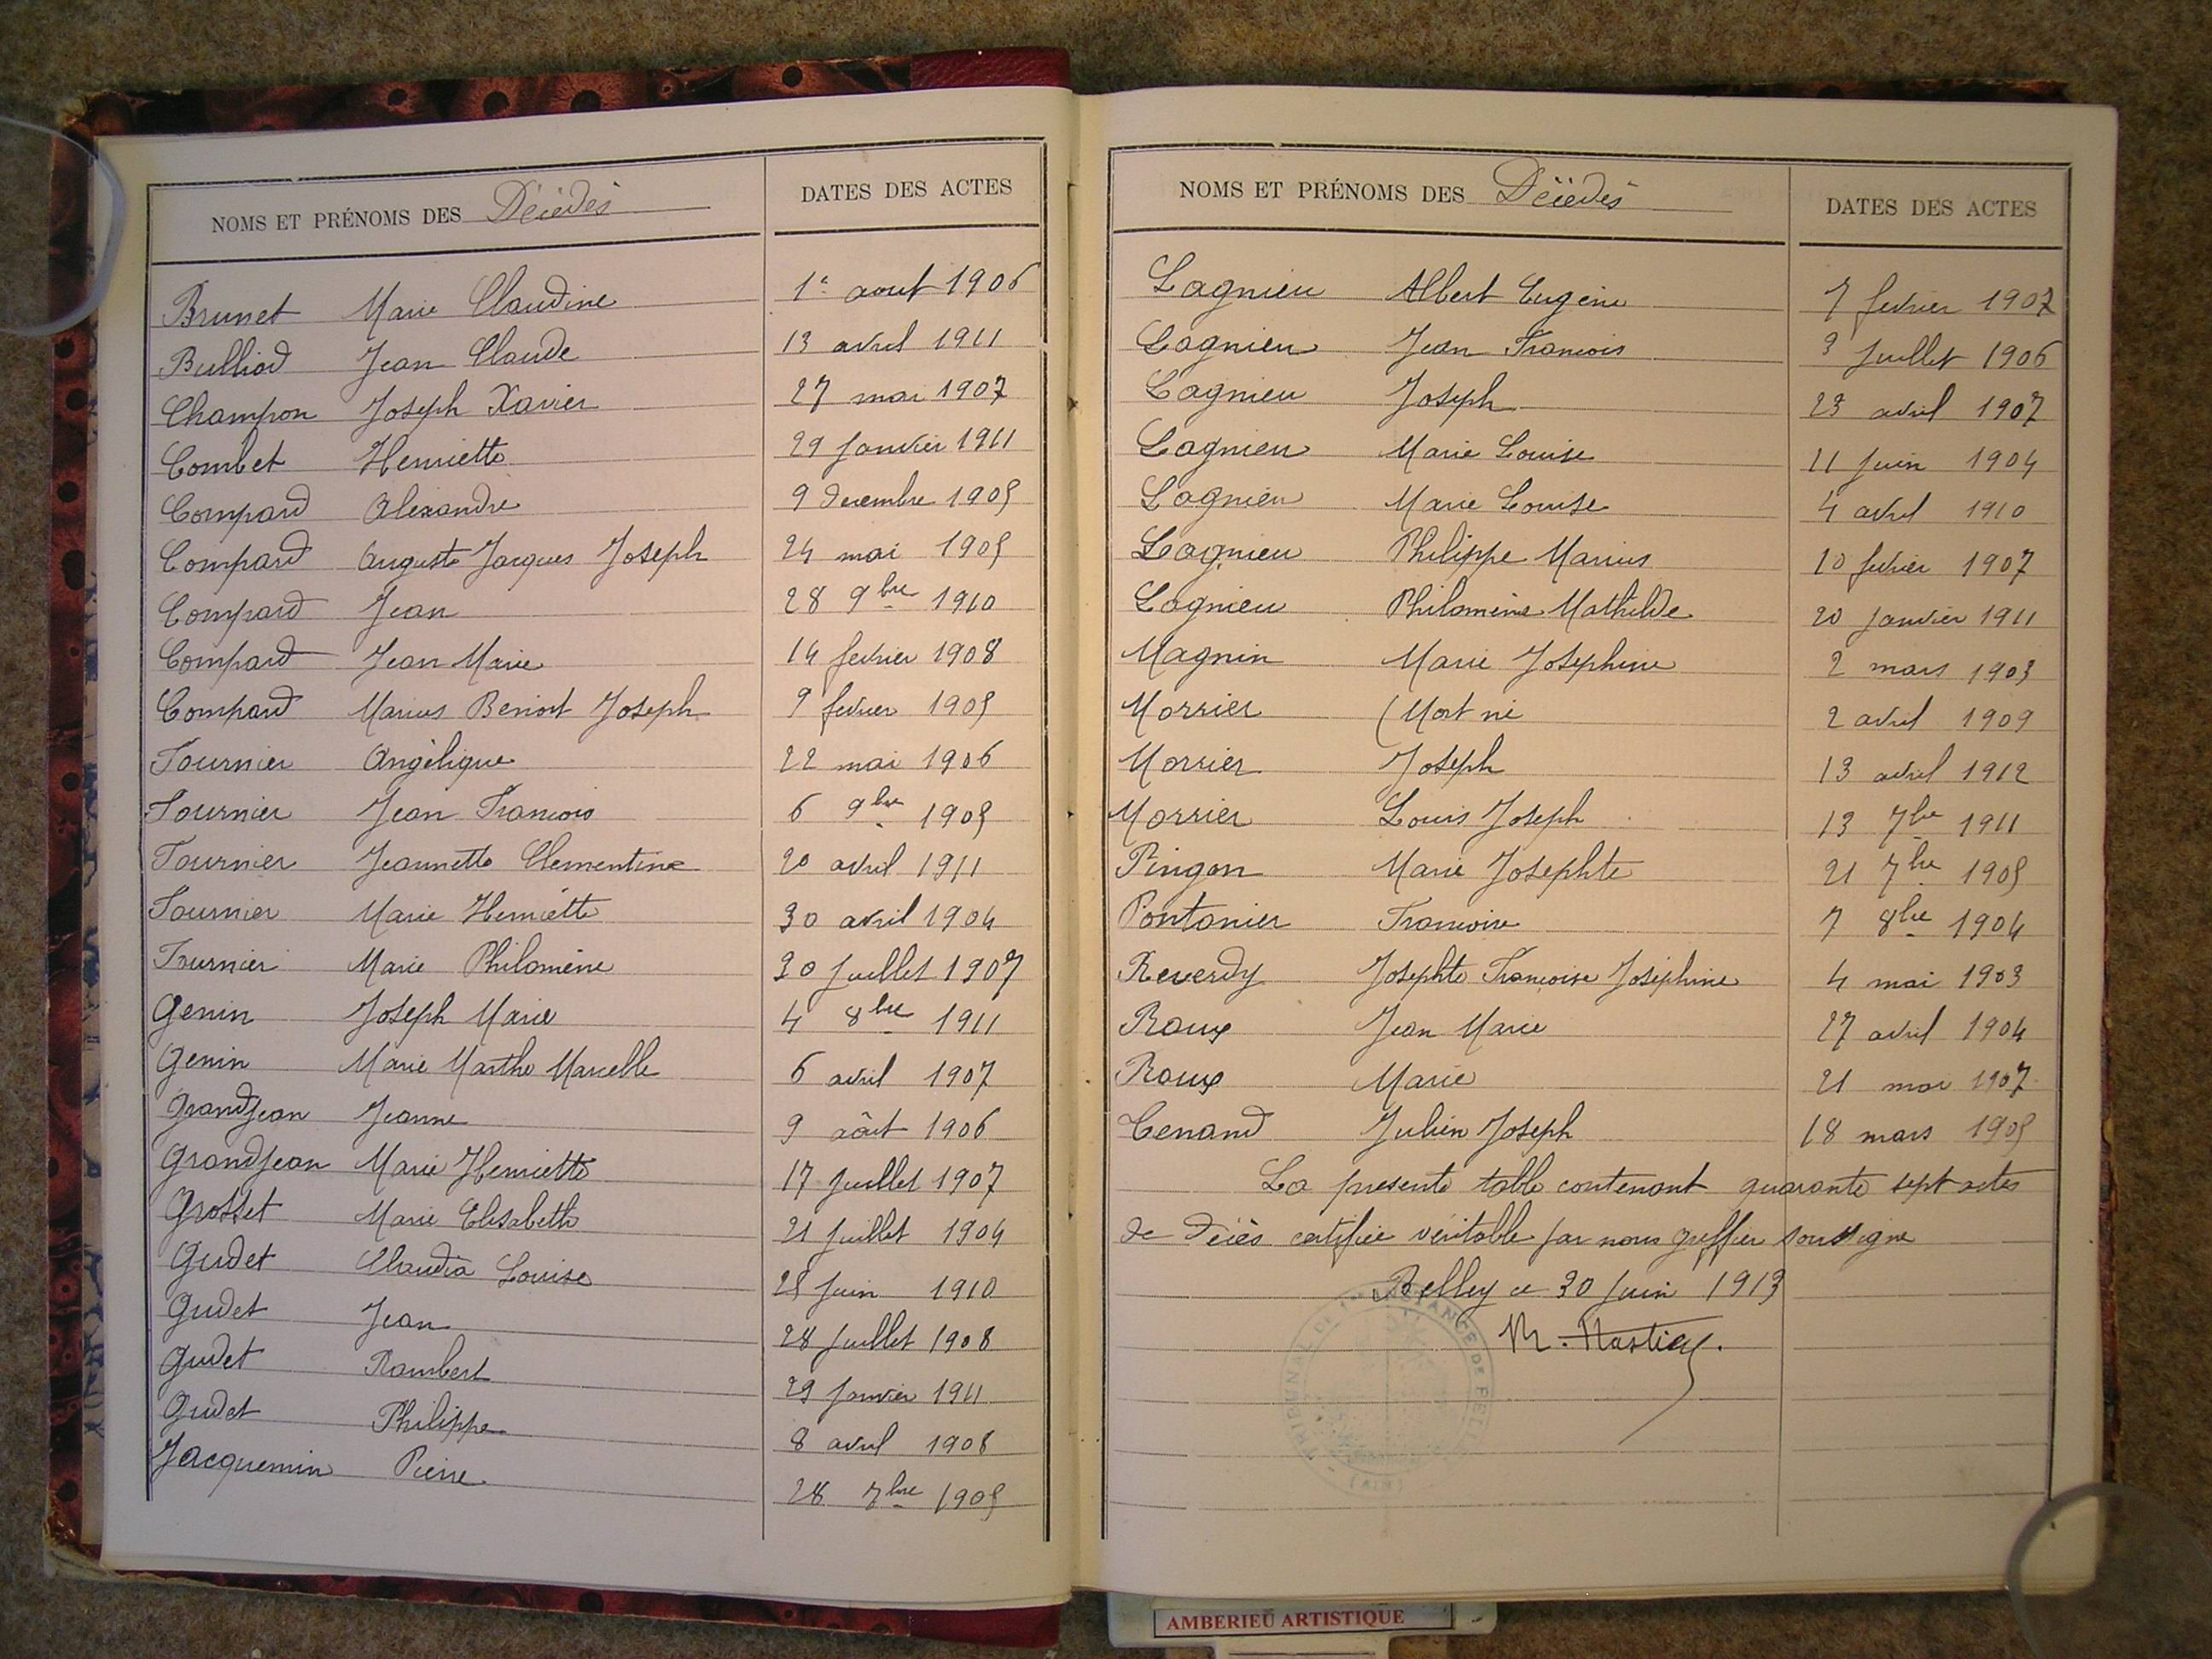 NOMS ET PRÉNOMS DES Décédés DATES DES ACTES
Brunet Marie Claudine 1er aout 1906
Bulliod Jean Claude 13 avril 1911
Champon Joseph Xavier 27 mai 1907
Combet Henriette 29 Janvier 1911
Compard Alexandre 9 decembre 1905
Compard Auguste Jacques Joseph 24 mai 1905
Compard Jean 28 9bre 1910
Compard Jean Marie 14 fevrier 1908
Compard Marius Benoit Joseph 9 fevrier 1905
Fournier Angèlique 22 mai 1906
Fournier Jean Francois 6 9bre 1905
Fournier Jeannette Clementine 20 avril 1911
Fournier Marie Henriette 30 avril 1904
Fournier Marie Philomène 30 Juillet 1907
Genin Joseph Marie 4 8bre 1911
Genin Marie Marthe Marcelle 6 avril 1907
Grandjean Jeanne 9 août 1906
Grandjean Marie Henriette 17 Juillet 1907
Grosset Marie Elisabeth 21 Juillet 1904
Gudet Claudia Louise 28 Juin 1910
Gudet Jean 28 Juillet 1908
Gudet Rambert 29 Janvier 1911
Gudet Philippe 8 avril 1908
Jacquemin Pierre 28 7bre 1905
NOMS ET PRÉNOMS DES Décédés DATES DES ACTES
Lagnieu Albert Eugène 7 fevrier 1907
Lagnieu Jean Francois 3 Juillet 1906
Lagnieu Joseph 23 avril 1907
Lagnieu Marie Louise 11 Juin 1904
Lagnieu Marie Louise 4 avril 1910
Lagnieu Philippe Marius 10 fevrier 1907
Lagnieu Philomène Mathilde 20 Janvier 1911
Magnin Marie Josephine 2 mars 1903
Morrier (Mort né 2 avril 1909
Morrier Joseph 13 avril 1912
Morrier Louis Joseph 13 7bre 1911
Pingon Marie Josephte 21 7bre 1905
Pontanier Francoise 7 8bre 1904
Reverdy Josephte Francoise Joséphine 4 mai 1903
Roux Jean Marie 27 avril 1904
Roux Marie 21 mai 1907
Tenand Julien Joseph 18 mars 1905
La presente table contenant quarante sept actes
de décès certifiée véritable par nous greffier soussigné
Belley ce 30 Juin 1913
TRIBUNAL DE 1re INSTANCE DE BELLEY
(AIN)
AMBERIEU ARTISTIQUE